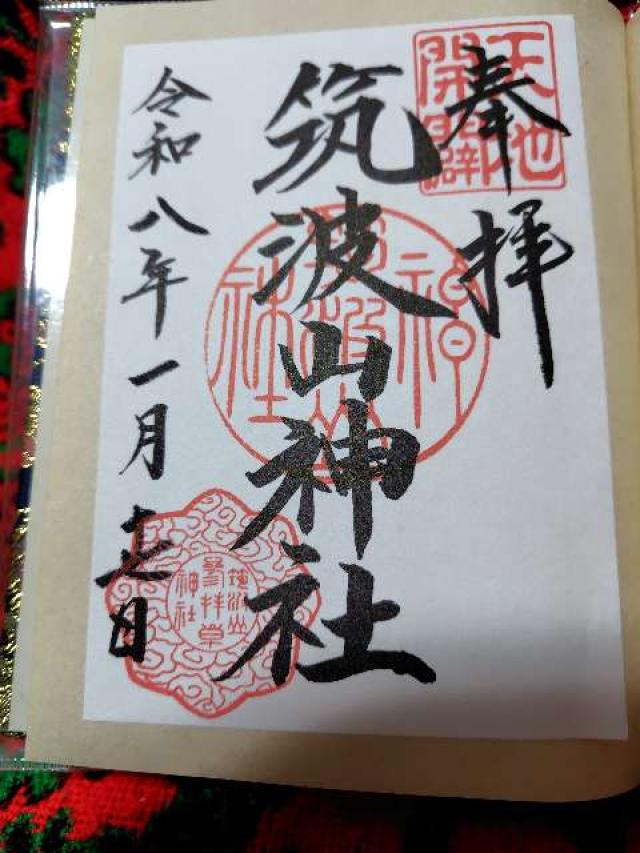 天地
開闢
奉拝
筑波山神社
令和八年一月日
神
筑波山
社
神社